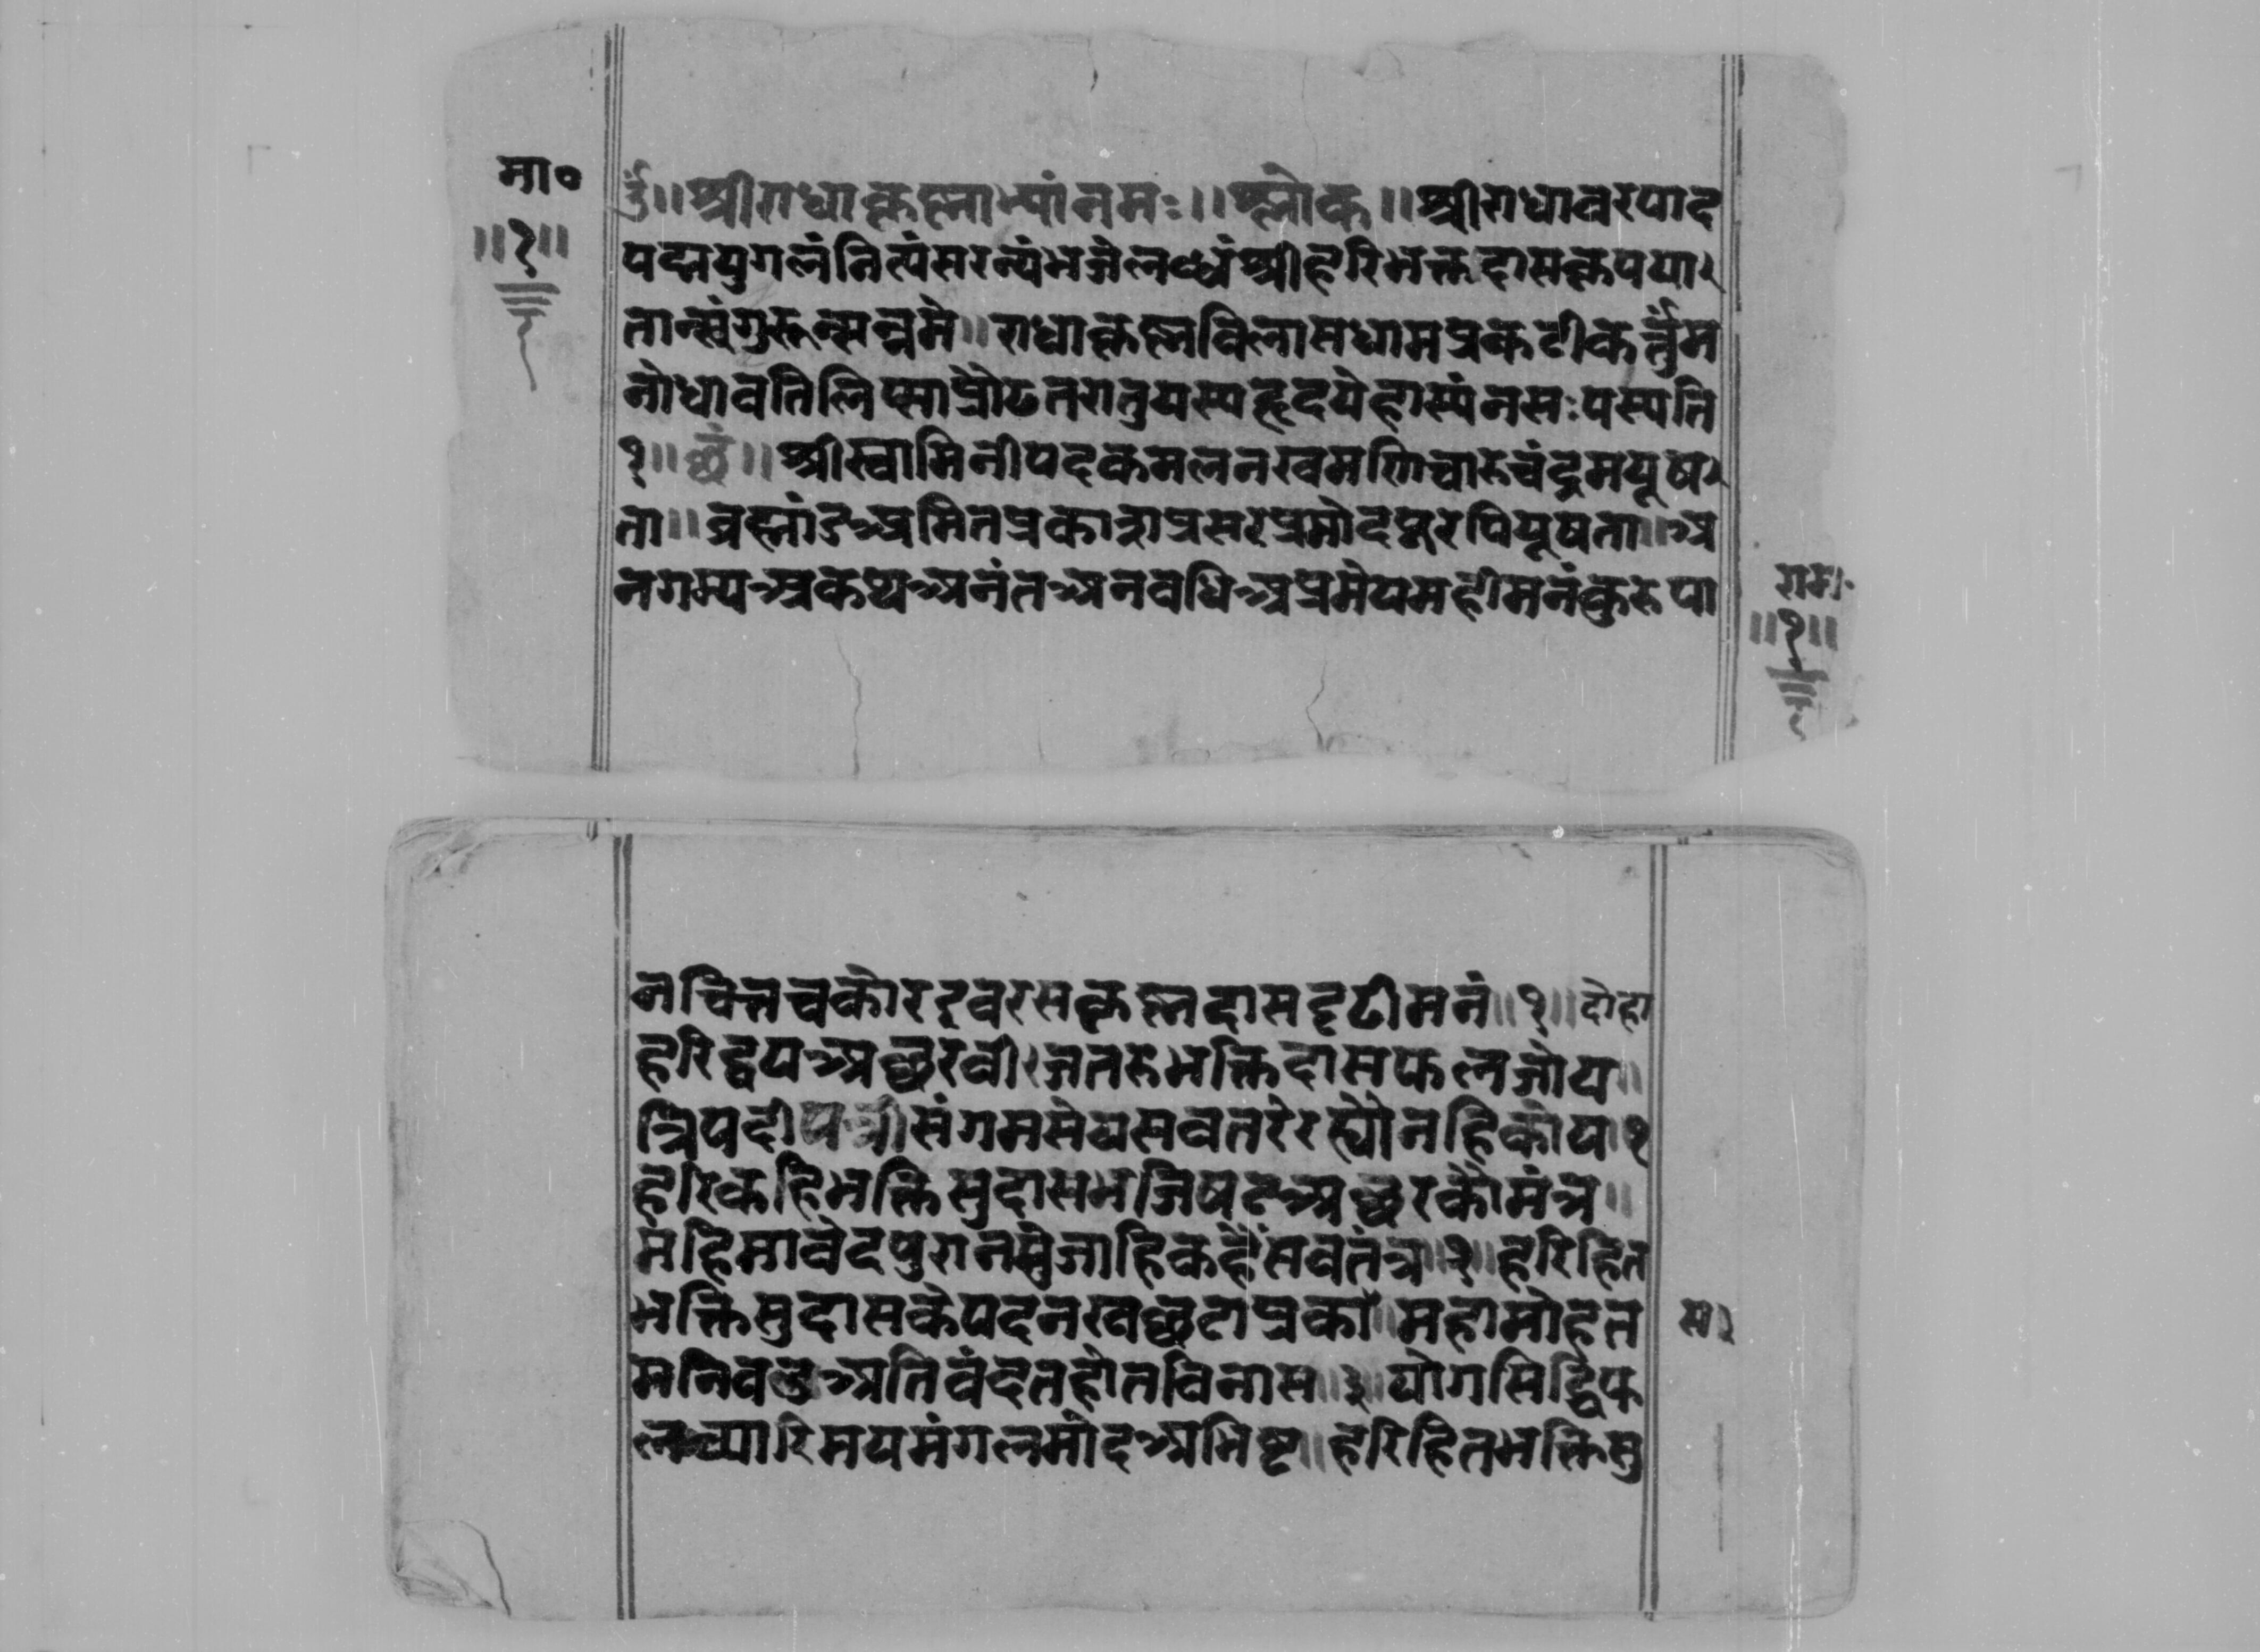 मा०
॥१॥
ॐ॥श्रीराधाकृष्नाभ्यांनमः॥श्लोक॥श्रीराधावरपाद
पद्मयुगलंनित्यंसरन्यंभजेलब्ध्यंश्रीहरिभक्तदासकृपया।
तान्संगुरून्सन्नमे॥राधाकृष्नविलासधामप्रकटीकर्त्तुम
नोधावतिलिप्साप्रौढतरातुयस्यहृदयेहास्यंनसःपस्यति
१॥छं॥श्रीस्वामिनीपदकमलनखमणिचारुचंद्रमयूष
ता॥ब्रह्मांडअमितप्रकाशप्रसरप्रमोदप्रूरपियूषता॥अ
नगम्यअकथ्यअनंतअनवधिअप्रमेयमहीमनंकुरुपा
राम
॥१॥
नचित्तचकोरद्रवरसकृष्नदासदृढीमनं॥१॥दोहा
हरिद्वयअछरवीजतरुभक्तिदासफलजोय॥
त्रिपदीपत्रीसंगमसेयसवतरेरह्यौनहिकोय१
हरिकहिभक्तिसुदासभजिषटअछरकौमंत्र॥
महिमावेदपुरानसुंजाहिकहैंसवतंत्र॥२॥हरिहित
भक्तिसुदासकेपदनखछटाप्रका॥महामोहत स
मनिवडअतिवंदतहोतविनास॥३॥योगसिद्धिफ
लच्यारिमयमंगलमोदअमिष्ट॥हरिहितभक्तिसु